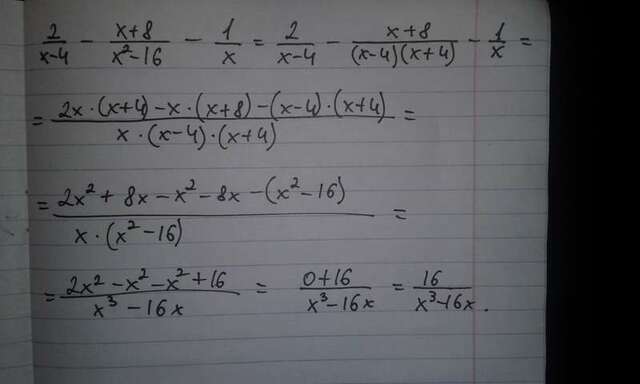 2/(x-4) - (x+8)/(x²-16) - 1/x = 2/(x-4) - (x+8)/((x-4)(x+4)) - 1/x =
= (2x·(x+4) - x·(x+8) - (x-4)·(x+4))/(x·(x-4)·(x+4)) =
= (2x² + 8x - x² - 8x - (x²-16))/(x·(x²-16)) =
= (2x² - x² - x² + 16)/(x³ - 16x) = (0+16)/(x³-16x) = 16/(x³-16x).